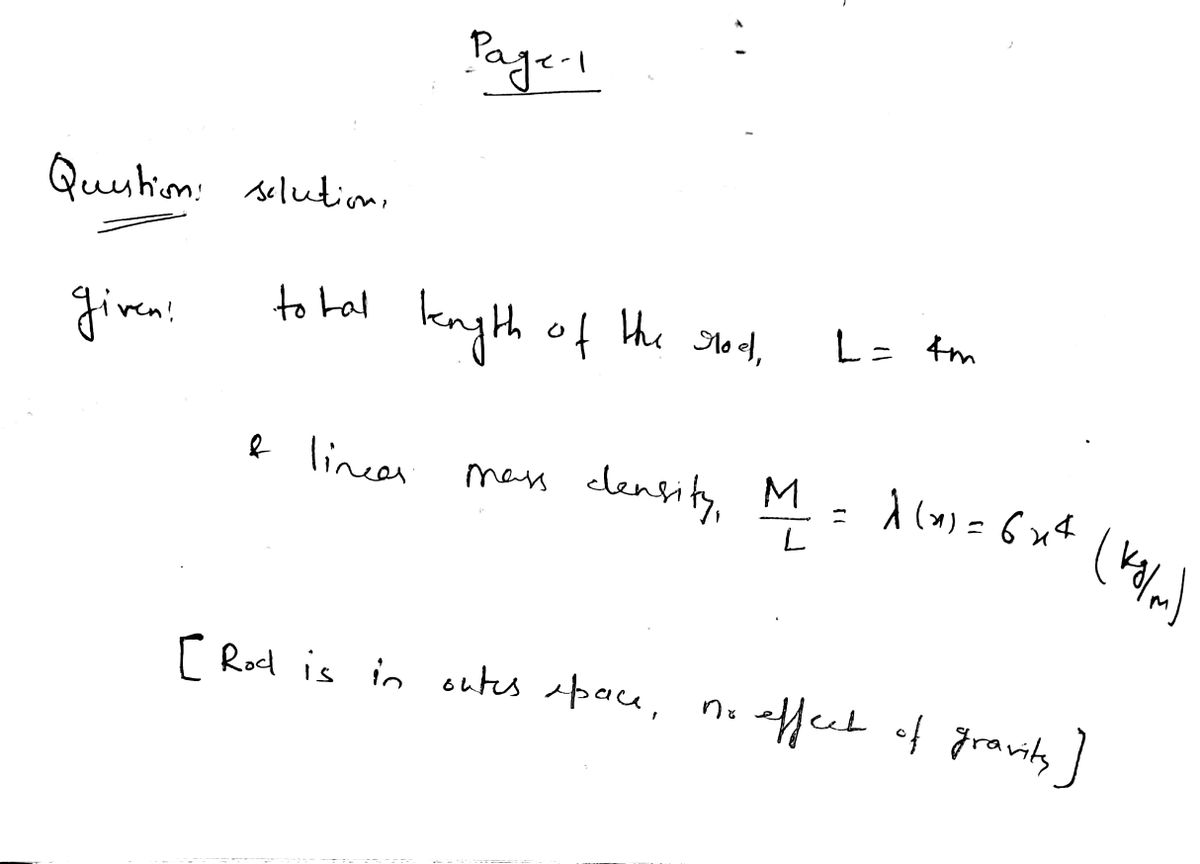 Page-1
Question: solution,
given: total length of the rod, L = 4m
& linear mass density, M/L = λ(x) = 6x⁴ (kg/m)
[Rod is in outer space, no effect of gravity]